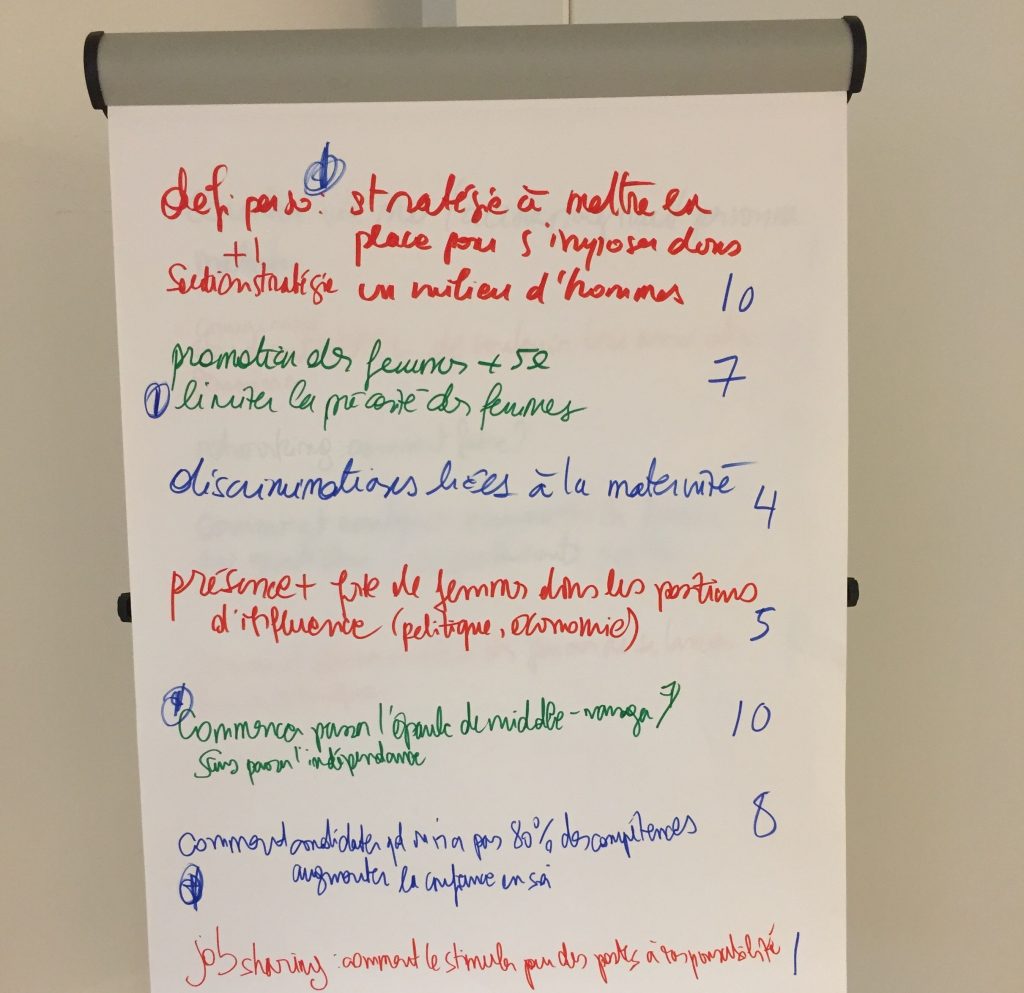 défi perso : stratégie à mettre en
place pour s'imposer dans
+1
stratégie un milieu d'hommes 10
promotion des femmes + 7
limiter la précarité des femmes
discriminations liées à la maternité 4
présence + forte de femmes dans les positions
d'influence (politique, économie) 5
passer de middle-manager 10
sans passer l'indépendance
comment candidater qd on n'a pas 80% des compétences 8
augmenter la confiance en soi
job sharing : comment le stimuler pour des postes à responsabilité 1